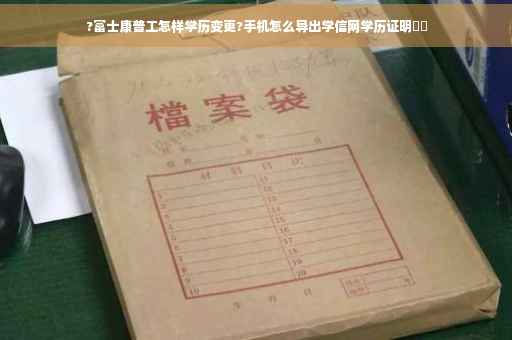 ?富士康普工怎样学历变更?手机怎么导出学信网学历证明
檔案袋
材料目次
1
2
3
4
5
6
7
8
9
10
11
12
13
14
15
16
17
18
19
20
年 月 日